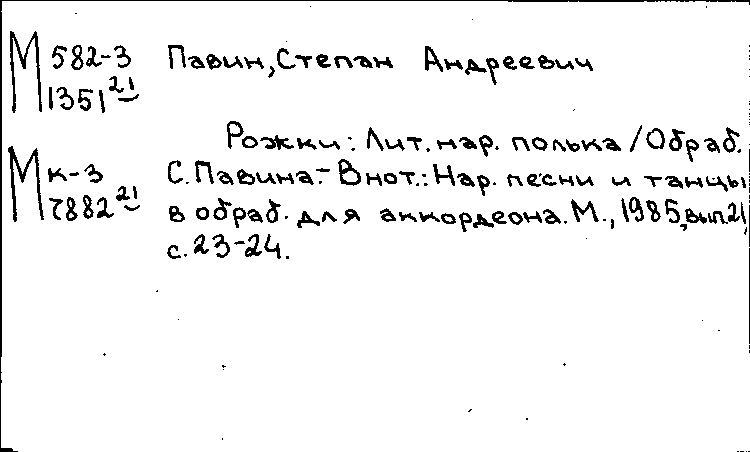 М 582-3 Павин, Степан Андреевич
1351 21
Рожки: Лит. нар. полька / Обраб.
М к-3 С. Павина.- В нот.: Нар. песни и танцы
7882 21 в обраб. для аккордеона. М., 1985, вып. 21,
с. 23-24.